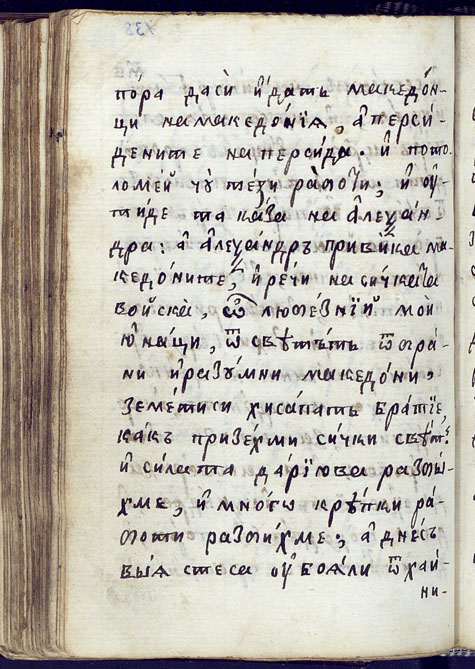 по́ра дасѝ и҆́датъ македо́н-
ци на македо́нїѧ, а҆ перси́-
дените на перси́да. и҆ пото-
ломе́й чꙋ̀ те́ѕи ра́боти; и҆ ѹ҆-
ти́де та ка́за на а҆леѯа́н
дра: а҆ а҆леѯа́ндръ привы́ка ма-
кедо́ните, и҆ ре́чи на си́чката
во́йска, ѽ любе́знїи мои̑
ю҆на́ци, ѿ свѣ́тътъ ѿбра́-
ни и҆ разꙋ́мни македо́ни,
земе́ти си хи сапатъ бра́тїе,
ка́къ призе́хми си́чки свѣ́тъ
и҆ си́лата да́рїюва разбы́-
хме, и҆ мно́гѡ крѣ́пки ра́-
боти разби́хме; а҆ дне́съ
вы́ѧ сте са ѹ҆боѧ́ли ѿ хаи́-
ни-